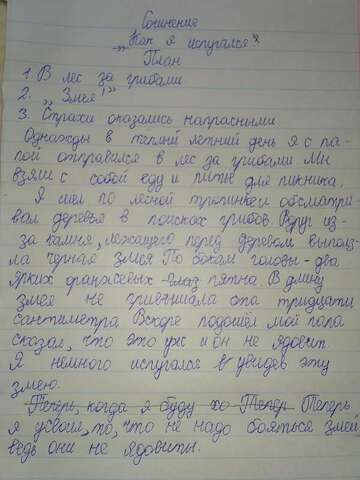 Сочинение
„Как я испугался"
План
1. В лес за грибами
2. „Змея!"
3. Страхи оказались напрасными
Однажды в теплый летний день я с па-
пой отправился в лес за грибами Мы
взяли с собой еду и питие для пикника.
Я шел по лесной тропинке и обсматри-
вал деревья в поисках грибов. Вдруг из-
за камня, лежащего перед деревом выполз-
ла черная змея По бокам головы - два
ярких оранжевых - глаз пятна. В длину
змея не превышала она тридцати
сантиметра Вскоре подошёл мой папа
сказал, что это уж и он не ядовит
Я немного испугался в увидев эту
змею.
Теперь, когда я буду хо Тепер Теперь
я усвоил, то, что не надо бояться змей
ведь они не ядовиты.